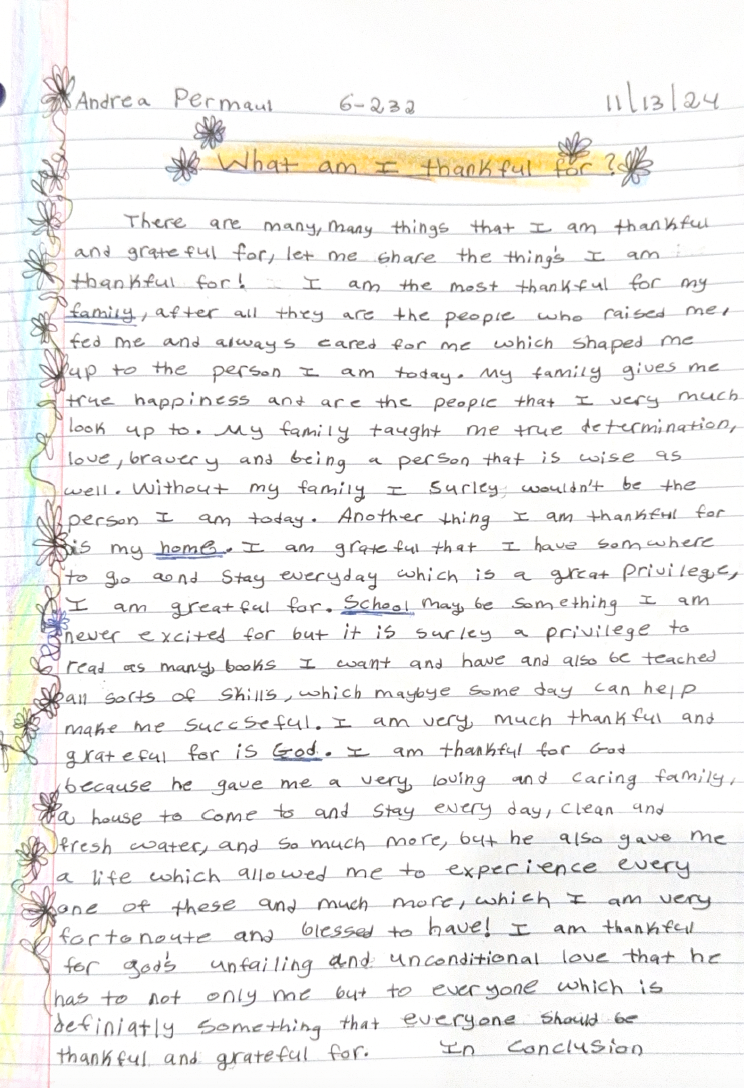 Andrea Permaul 6-232 11/13/24
What am I thankful for?
There are many, many things that I am thankful
and grateful for, let me share the thing's I am
thankful for! I am the most thankful for my
family, after all they are the people who raised me,
fed me and always cared for me which shaped me
up to the person I am today. My family gives me
true happiness and are the people that I very much
look up to. My family taught me true determination,
love, bravery and being a person that is wise as
well. Without my family I surley wouldn't be the
person I am today. Another thing I am thankful for
is my home. I am grateful that I have somwhere
to go aond stay everyday which is a great privilege,
I am greatful for. School may be something I am
never excited for but it is surley a privilege to
read as many books I want and have and also be teached
all sorts of skills, which maybye some day can help
make me succseful. I am very much thankful and
grateful for is God. I am thankful for God
because he gave me a very loving and caring family,
a house to come to and stay every day, clean and
fresh water, and so much more, but he also gave me
a life which allowed me to experience every
one of these and much more, which I am very
fortonoute and blessed to have! I am thankful
for god's unfailing and unconditional love that he
has to not only me but to everyone which is
definiatly something that everyone should be
thankful and grateful for. In conclusion